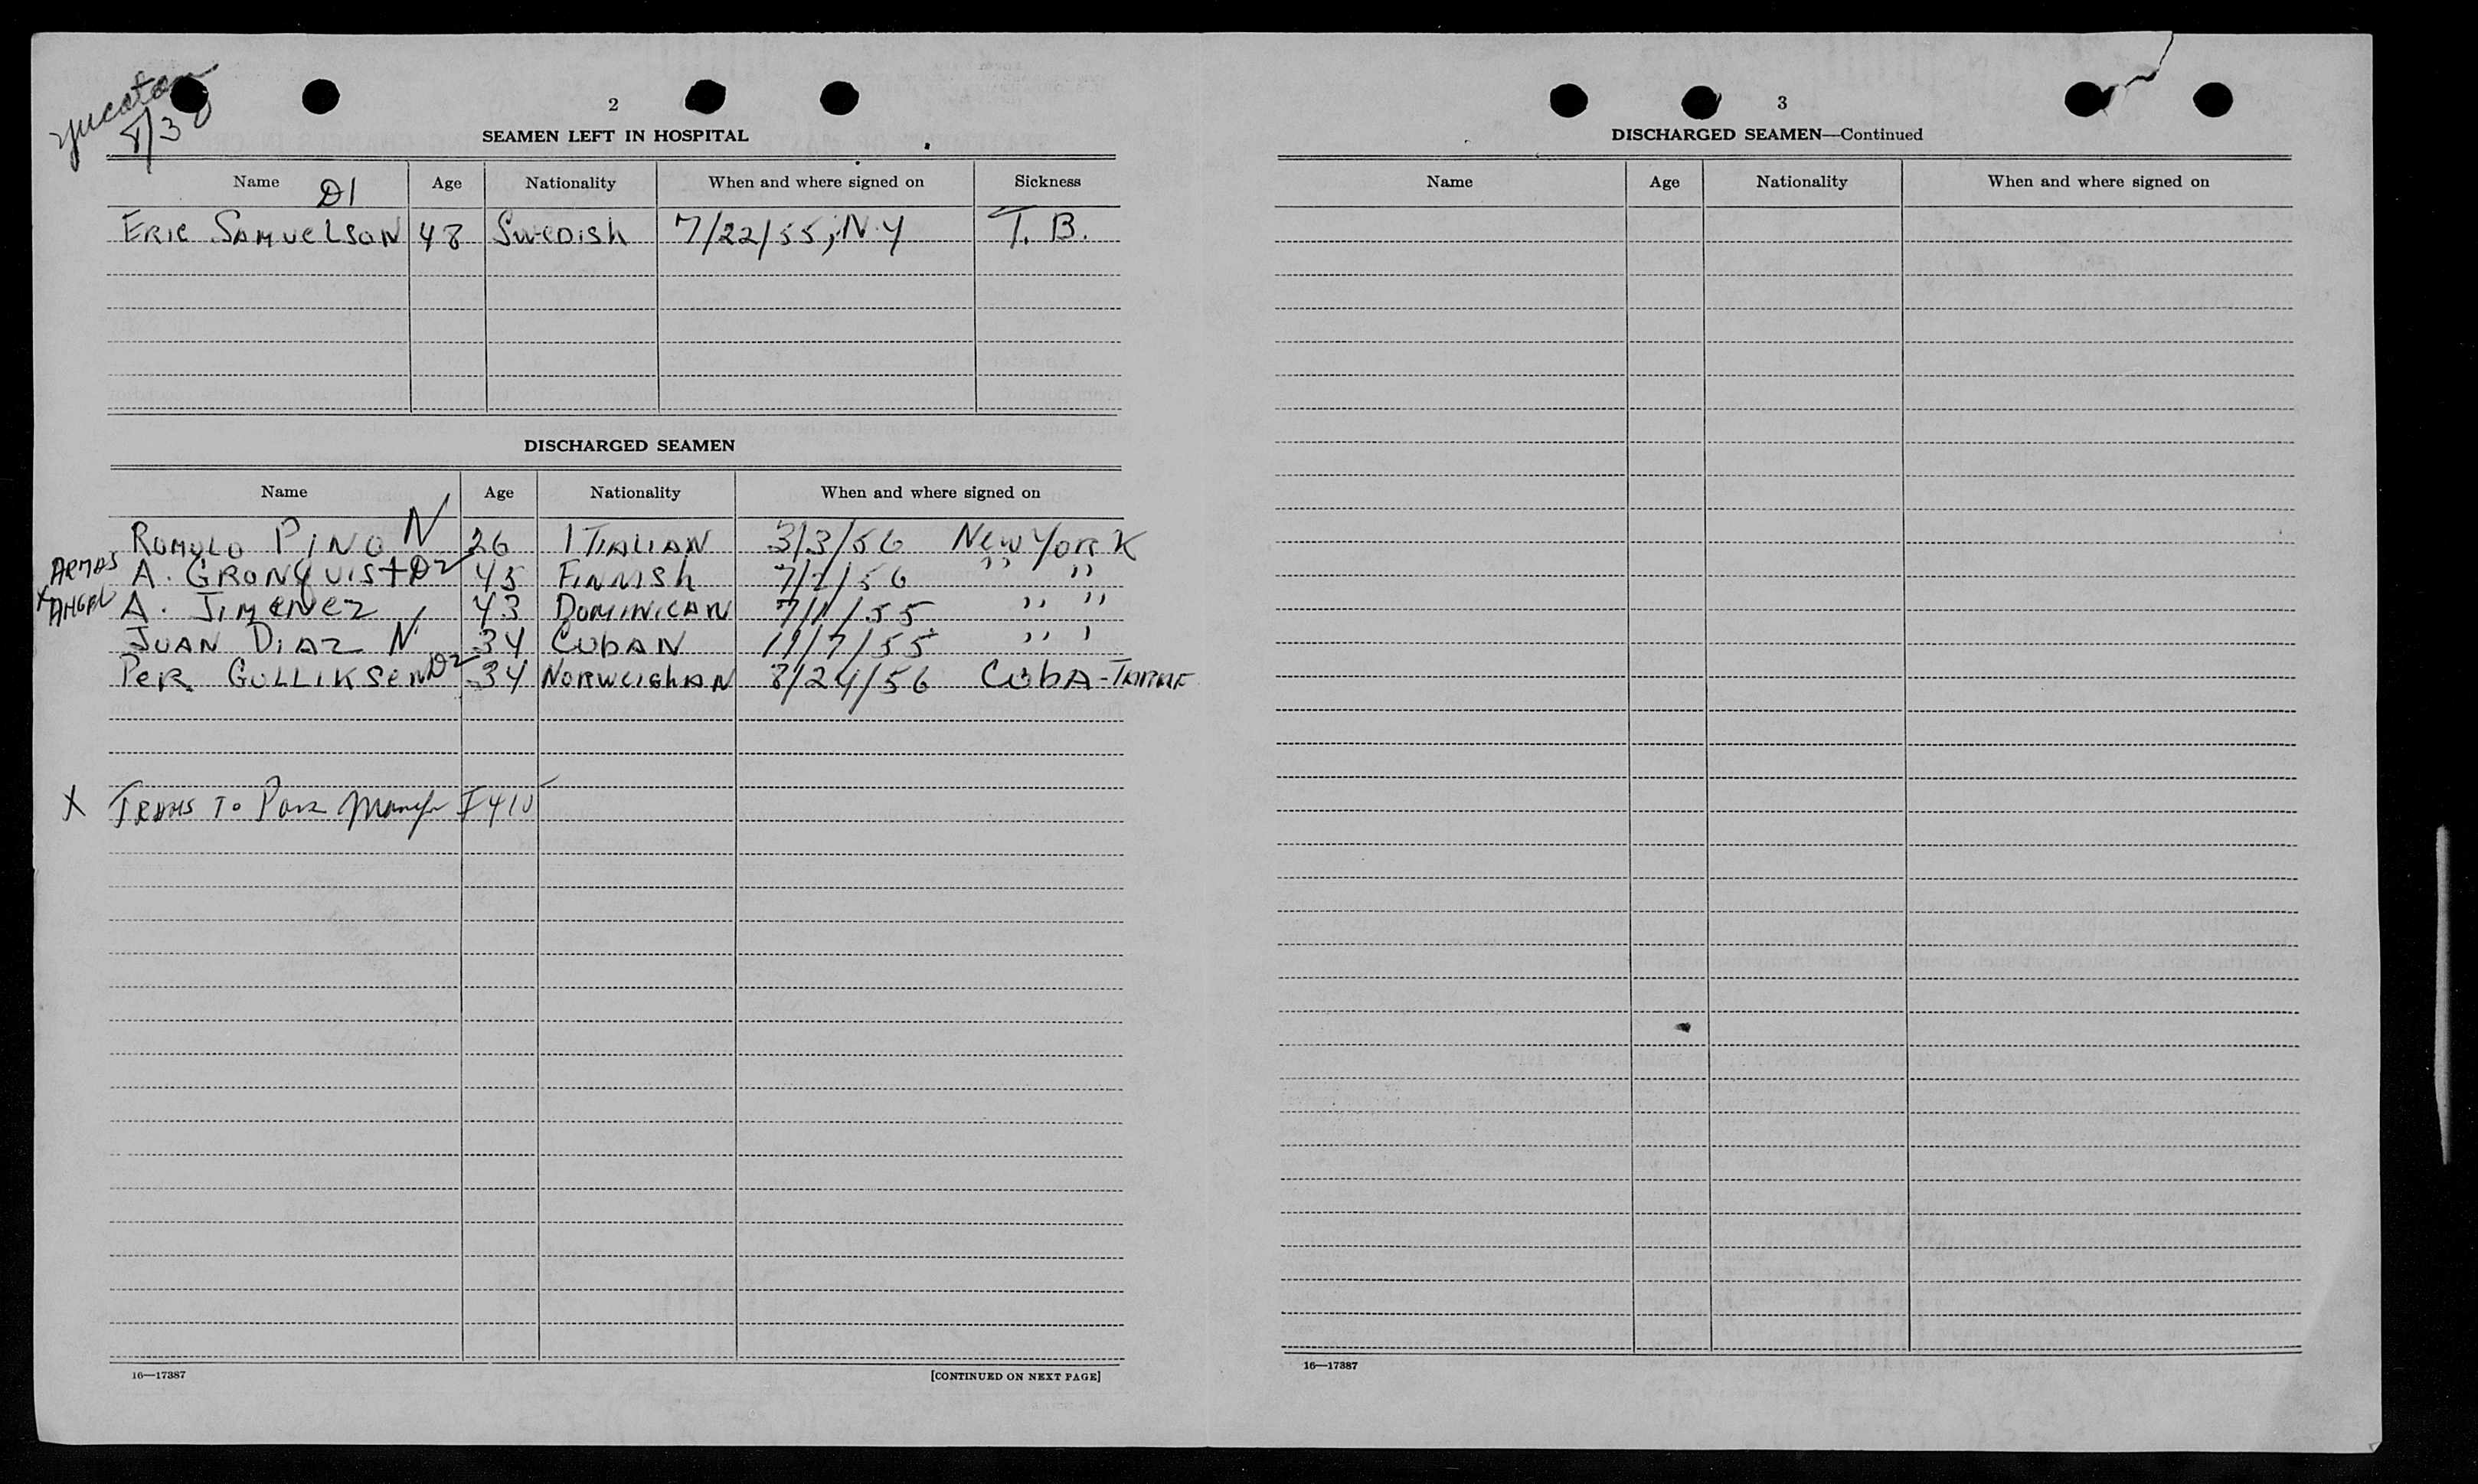 Yucatan
8/30
2
SEAMEN LEFT IN HOSPITAL
Name D1 Age Nationality When and where signed on Sickness
ERIC SAMUELSON 48 SWEDISH 7/22/55, N.Y T. B.
DISCHARGED SEAMEN
Name Age Nationality When and where signed on
ROMOLO PINO N 26 ITIALIAN 3/3/56 New York
ARMAS A. GRONQVIST D2 45 FINNISH 7/7/56 " "
X ANGEL A. JIMENEZ 43 DOMINICAN 7/1/55 " "
JUAN DIAZ N 34 CUBAN 11/7/55 " "
PER GULLIKSEN D2 34 NORWEIGHAN 8/24/56 CUBA-
X TRANS TO I 410
16—17387
[CONTINUED ON NEXT PAGE]
3
DISCHARGED SEAMEN—Continued
Name Age Nationality When and where signed on
16—17387